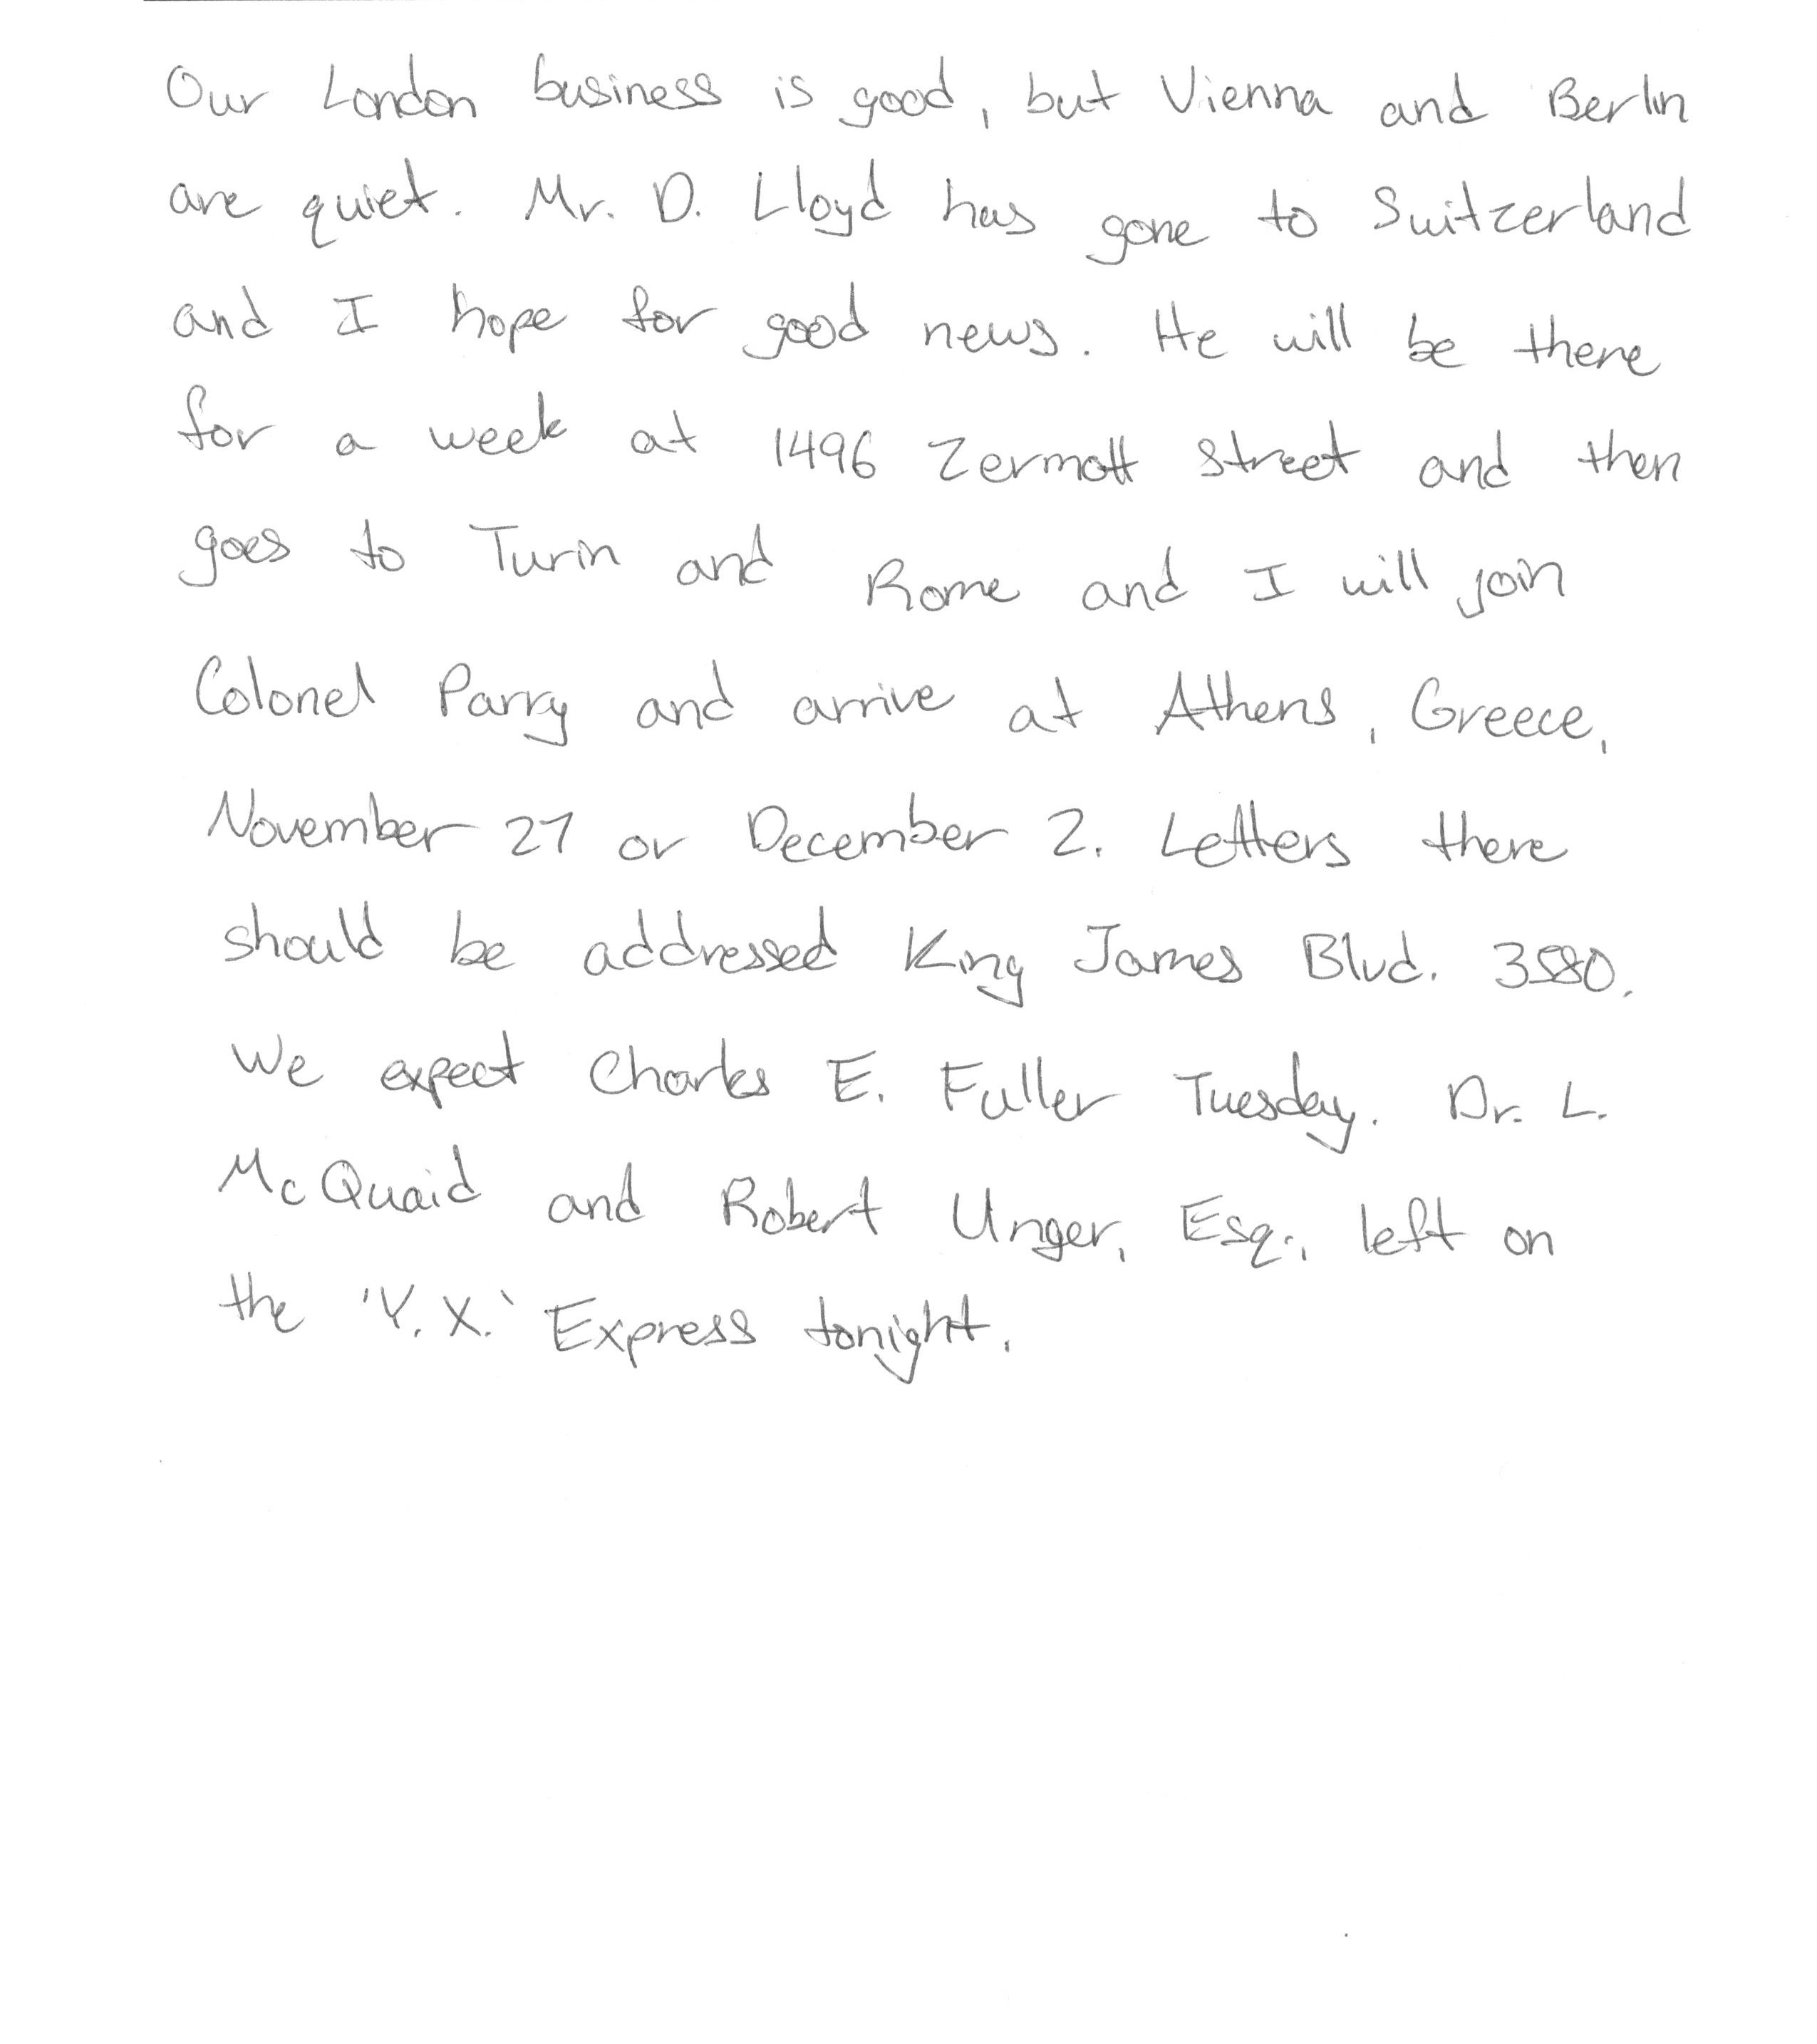 Our London business is good, but Vienna and Berlin
are quiet. Mr. D. Lloyd has gone to Switzerland
and I hope for good news. He will be there
for a week at 1496 Zermott Street and then
goes to Turin and Rome and I will join
Colonel Parry and arrive at Athens, Greece,
November 27 or December 2. Letters there
should be addressed King James Blvd. 3580.
We expect Charles E. Fuller Tuesday. Dr. L.
McQuaid and Robert Unger, Esq., left on
the 'Y.X.' Express tonight.